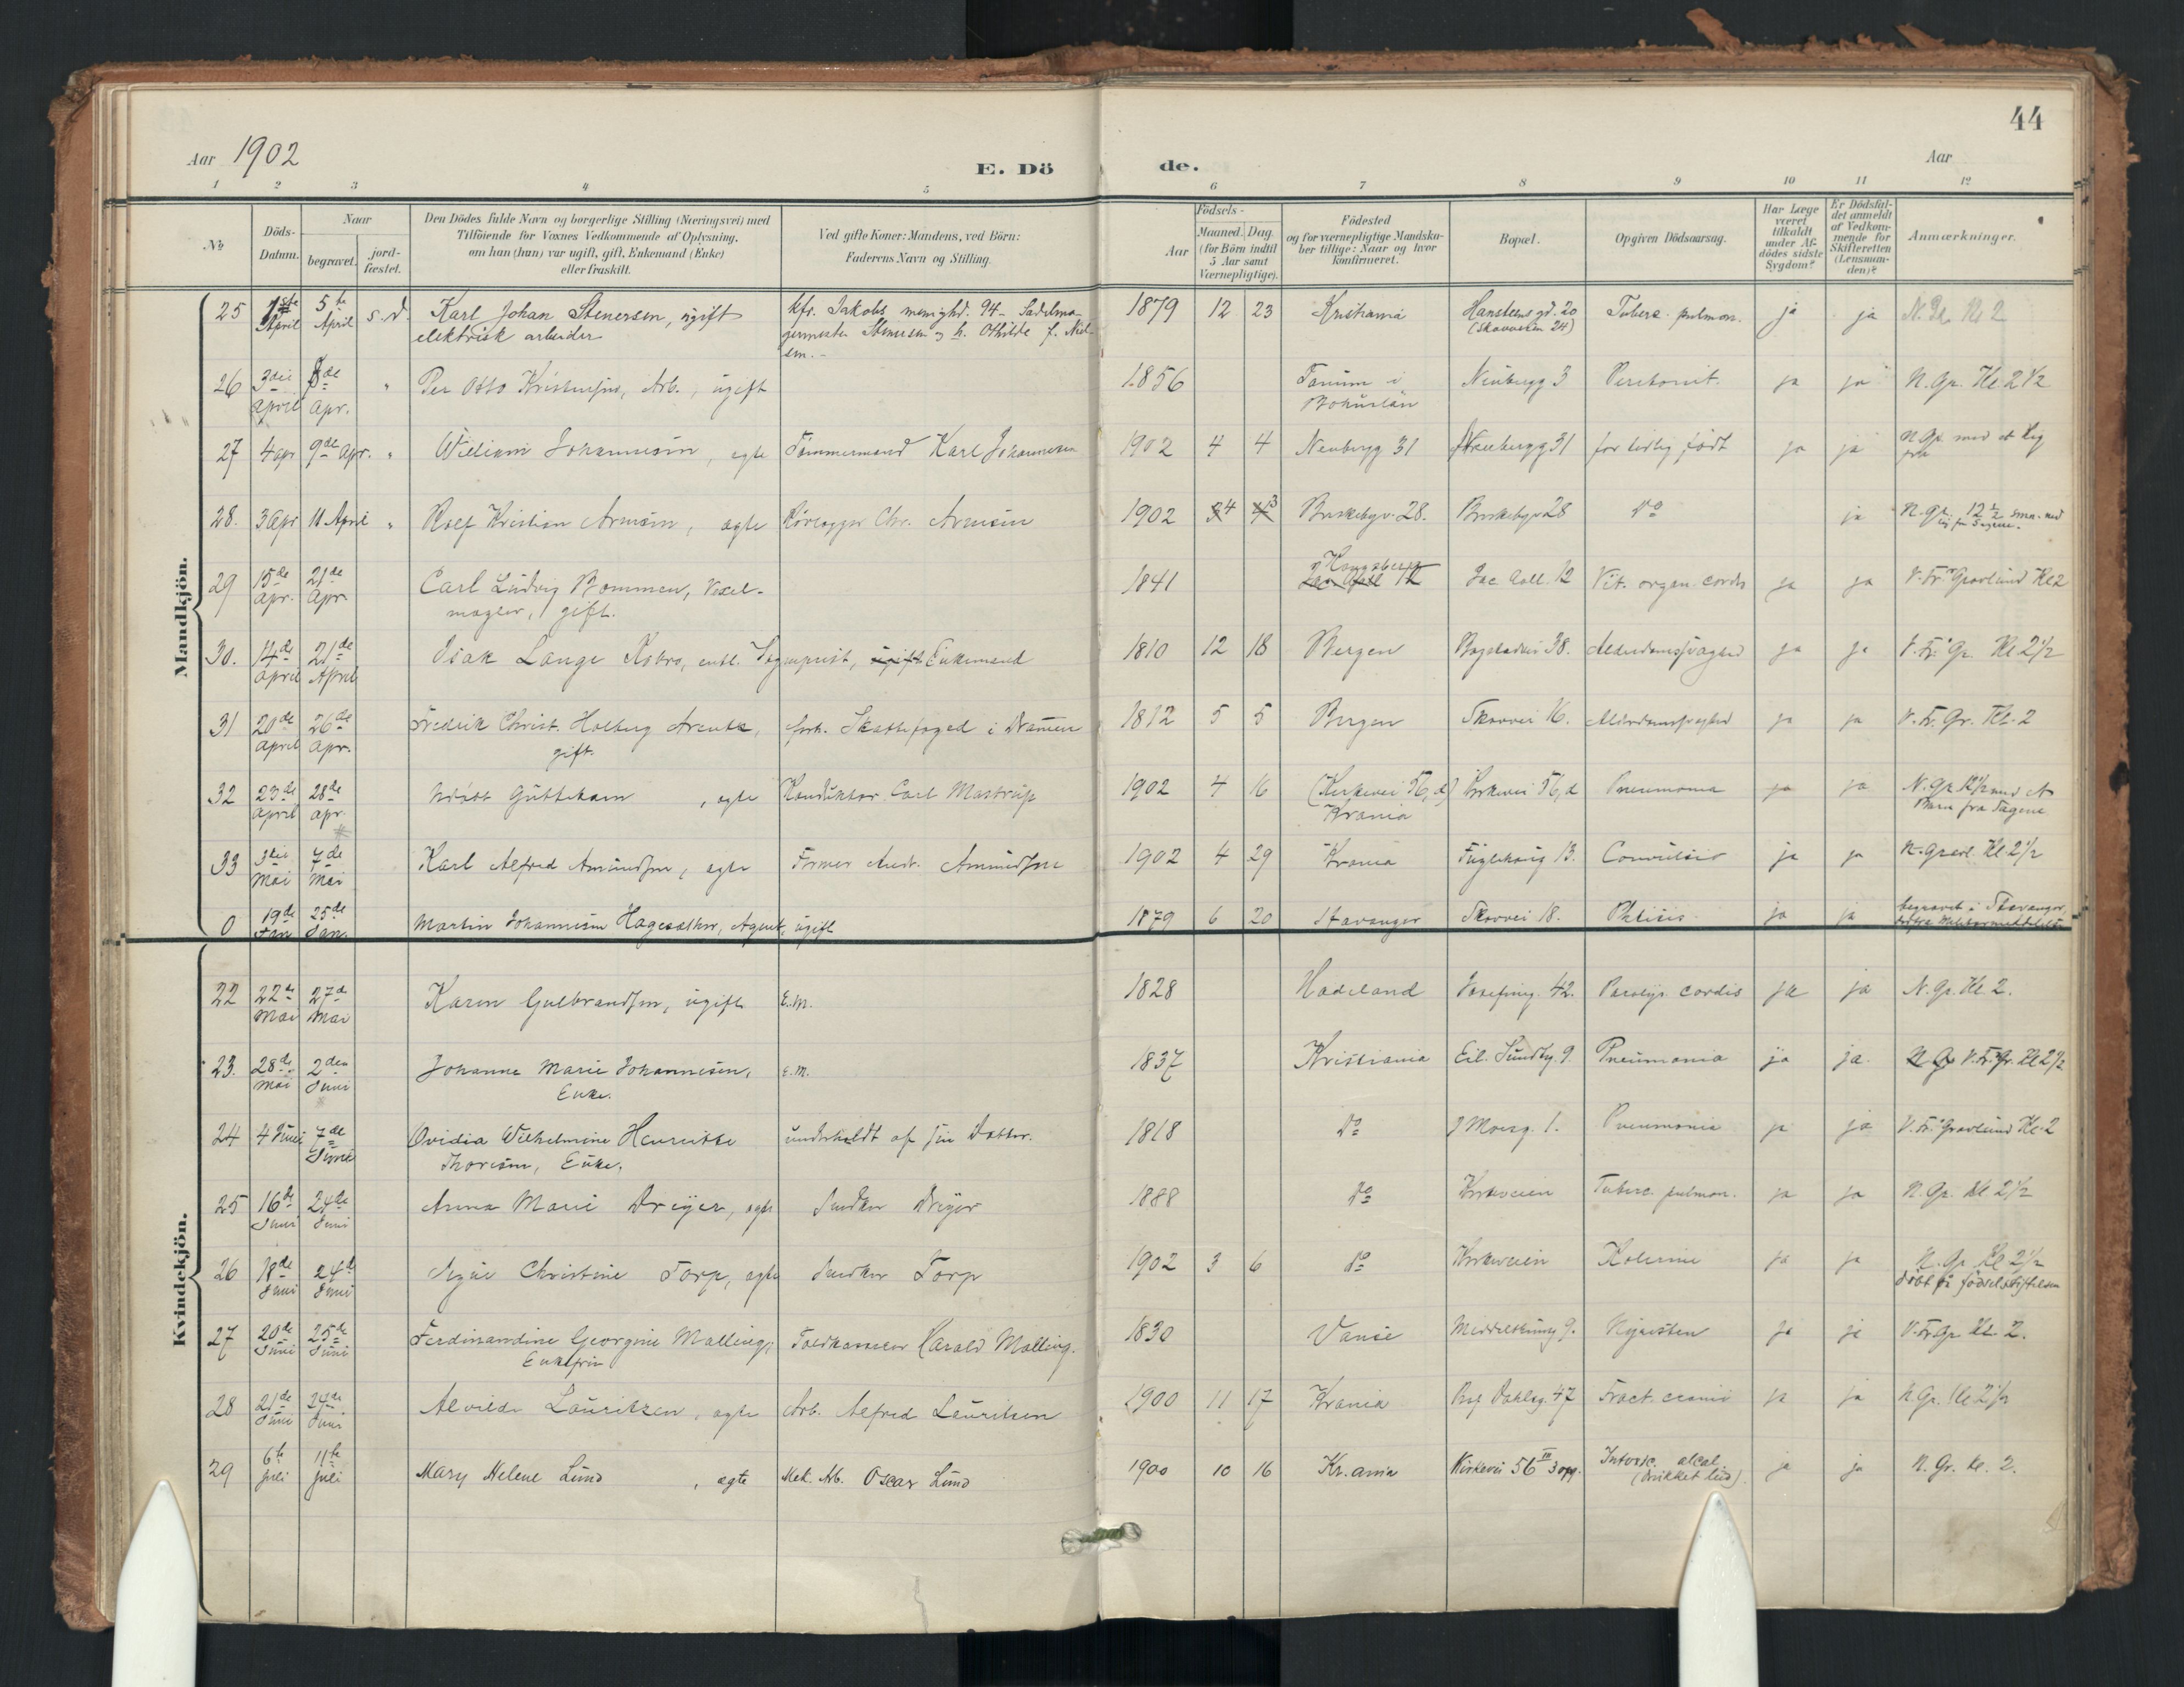 44
Aar 1902
E. Dö de.
Aar
1 2 3 4 5 6 7 8 9 10 11 12
No
Döds-
Datum.
Naar
begravet.
jord-
fæstet.
Den Dödes fulde Navn og borgerlige Stilling (Næringsvei) med
Tilföiende for Voxnes Vedkommende af Oplysning,
om han (hun) var ugift, gift, Enkemand (Enke)
eller fraskilt.
Ved gifte Koner: Mandens, ved Börn:
Faderens Navn og Stilling.
Födsels-
Aar
Maaned. Dag.
(for Börn indtil
5 Aar samt
Værnepligtige).
Födested
og for værnepligtige Mandska-
ber tillige: Naar og hvor
konfirmeret.
Bopæl.
Opgiven Dödsaarsag.
Har Læge
været
tilkaldt
under Af-
dödes sidste
Sygdom?
Er Dödsfal-
det anmeldt
af Vedkom-
mende for
Skifteretten
(Lensman-
den)?
Anmærkninger.
Mandkjön.
25 1ste April 5te April s.d. Karl Johan Stenersen, ugift kfr. Jakobs menighd. 94 - Sadelma- 1879 12 23 Kristiania Hansteens gd. 20 Tuberc. pulmon. ja ja N. Gr. Kl 2
elektrisk arbeider germester Stenersen og h. Othilde f. Niel- (Skovveien 24)
sen.-
26 3die April 8de Apr. " Per Otto Kristensen, Arb., ugift 1856 Tanum i Neubergg 3 ja ja N. Gr. Kl. 2 1/2
Bohuslän
27 4 apr 9de Apr. " William Johannesen, ægte Tömmermand Karl Johannesen 1902 4 4 Neubergg 31 Neubergg 31 for tidlig født ja ja N Gr. med et Lig
fra
28. 3 Apr 11 April " Rolf Kristian Arnesen, ægte Rörlægger Chr. Arnesen 1902 4 3 Briskebyv. 28. Briskebyv 28 Do ja N. Gr. 12 1/2 sm. med
lig fra Sagene.
29 15de Apr. 21de Apr. Carl Ludvig Bommen, Vexel- 1841 Kongsberg Jac Aall. 12 Vit. organ. cordis ja ja V. Fr. Gravlund Kl 2
mægler, gift.
30. 14de April 21de April Isak Lange Kobro, entl. Sogneprest, Enkemand 1810 12 18 Bergen Bogstadvei 38. Alderdomssvaghed ja ja V. Fr. Gr. Kl 2 1/2
31 20de April 26de Apr. Fredrik Christ. Holberg Arentz, forh. Skattefoged i Drammen 1812 5 5 Bergen Skovvei 16. Alderdomssvaghed ja ja V. Fr. Gr. Kl. 2
gift.
32 23de April 28de Apr. Udöbt Guttebarn, ægte Konduktor Carl Mastrup 1902 4 16 (Kirkevei 56, d) Kirkevei 56, d Pneumonia ja ja N. Gr. 12 1/2 med et
Krania Barn fra Sagene
33 3die Mai 7de Mai Karl Alfred Amundsen, ægte Former Andr. Amundsen 1902 4 29 Krania Fuglehaug 13. Convulsio ja ja N. Gravl. Kl 2 1/2
0 19de Jan 25de Jan. Martin Johannesen Hagesæther, Agent, ugift 1879 6 20 Stavanger Skovvei 18. Phtisis ja ja begravet i Stavanger,
Kvindekjön.
22 22de Mai 27de Mai Karen Gulbrandsen, ugift E.M. 1828 Hadeland Josefineg. 42. Paralys. cordis ja ja N. Gr. Kl 2.
23. 28de Mai 2den Juni Johanne Marie Johannesen, E.M. 1837 Kristiania Eil. Sundtg. 9. Pneumonia ja ja. V. Fr. Gr. Kl 2 1/2
Enke.
24 4 Juni 7de Juni Ovidia Wilhelmine Henriette underholdt af sin Datter. 1818 Do J Moesg. 1. Pneumonia ja ja V. Fr. Gravlund Kl. 2
Thoresen, Enke.
25 16de Juni 24de Juni Anna Marie Dreyer, ægte Snedker Dreyer 1888 Do Kirkeveien Tuberc. pulmon. ja ja N. Gr. Kl 2 1/2
26 18de Juni 24de Juni Christine Torp, ægte Snedker Torp 1902 3 6 Do Kirkeveien Kolerine ja ja N. Gr. Kl 2 1/2
döbt på Födselsstiftelsen
27 20de Juni 25de Juni Ferdinandine Georgine Malling, Toldkasserer Harald Malling. 1830 Vanse Middelthunsg 9. Nyrelsten ja ja V. Fr. Gr. Kl. 2.
Enkefru
28 21de Juni 24de Juni Alvilde Lauritzen, ægte Arb. Alfred Lauritsen 1900 11 17 Krania Prof Dahlsg. 47 Fract. cranii ja ja N. Gr. Kl 2 1/2
29 6te juli 11te juli Mary Helene Lund, ægte Mek. Arb. Oscar Lund 1900 10 16 Kr.ania Kirkevei 56 III 3 opg. Intoxic. alcal ja ja N. Gr. kl. 2.
(drikket lud).